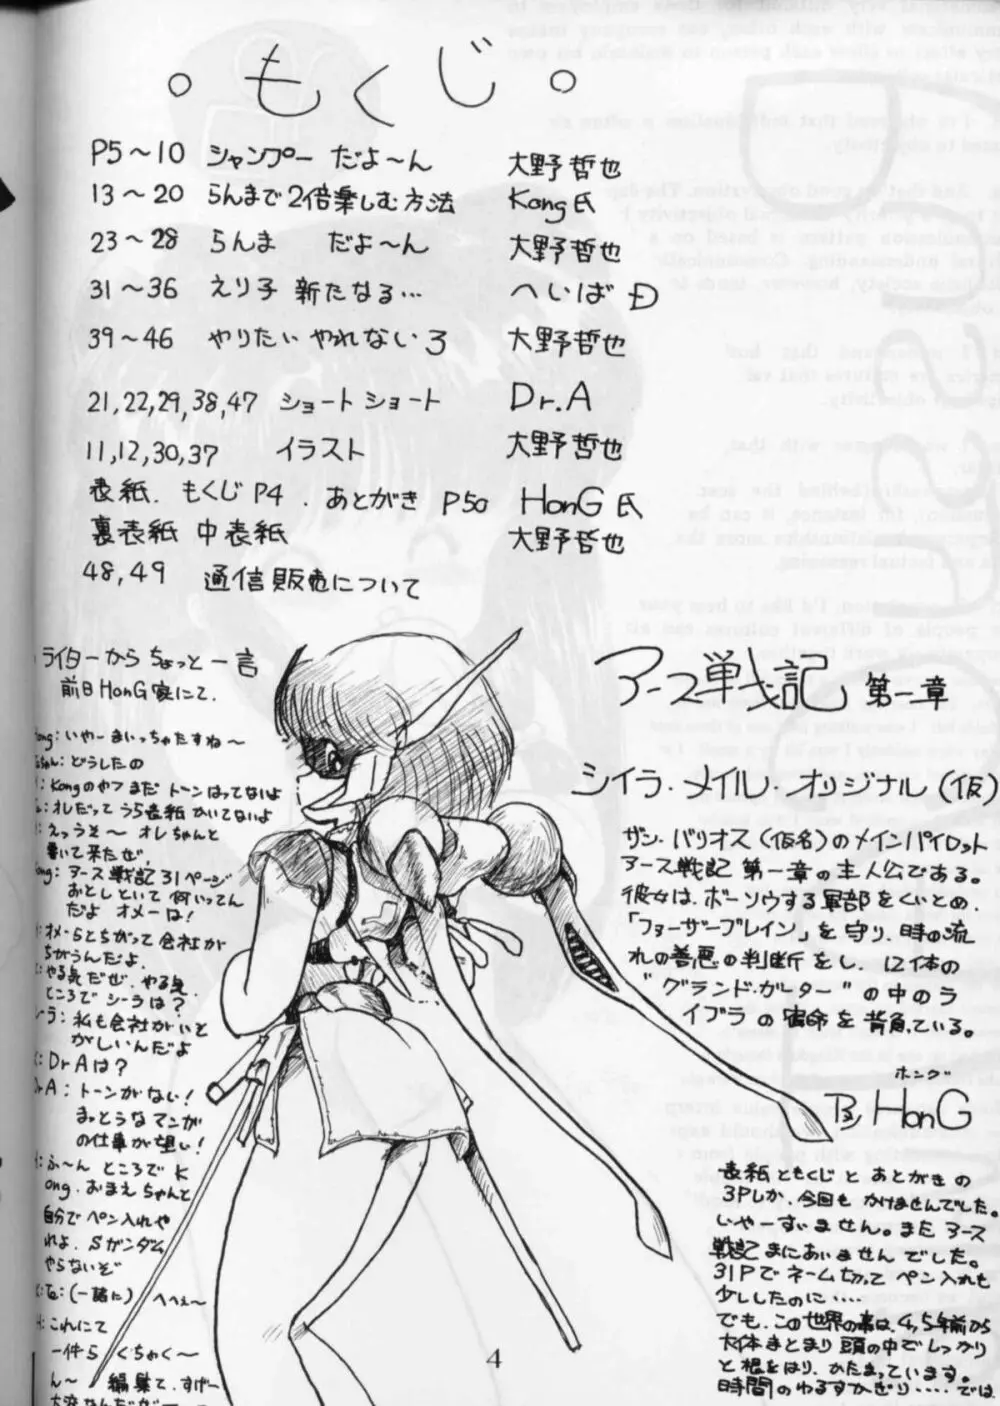 。もくじ。
P5～10 シャンプー だよ～ん 大野哲也
13～20 らんまで2倍楽しむ方法 Kong氏
23～28 らんま だよ～ん 大野哲也
31～36 えり子 新たなる… へいばĐ
39～46 やりたい やれない 3 大野哲也
21,22,29,38,47 ショートショート Dr.A
11,12,30,37 イラスト 大野哲也
表紙. もくじP4. あとがき P50 HonG氏
裏表紙 中表紙 大野哲也
48,49 通信販売について
ライターからちょっと一言
前日HonG家にて.
ong: いやーまいっちゃたすね～
ちゃん: どうしたの
: Kongのやつまだ トーンはってないよ
: オレだって うら表紙かいてないよ
: えっうそ～ オレちゃんと
書いて来たぜ,
ong: アース戦記31ページ
おとしといて 何いってん
だよ オメーは!
: オメーらとちがって会社が
ちがうんだよ,
: やる気だぜ,やる気,
ところで シーラは?
ーラ: 私も会社がいと
がしいんだよ
: DrAは?
rA: トーンがない!
まっとうなマンガ
の仕事が望い!
: ふ～ん ところで K
ong. おまえちゃんと
自分でペン入れや
れよ. Sガンダム
やらないぞ
: Te: (一諸に) へへぇ～
H: これにて
一件らくちゃく～
ん～ 編集て.すげー
大変なんだが
アース戦記 第一章
シイラ・メイル・オリジナル(仮)
ザン・バリオス(仮名)のメインパイロット
アース戦記 第一章の主人公である。
彼女は.ボーソウする軍部をくいとめ.
「ファーザーブレイン」を守り.時の流
れの善悪の判断をし.12体の
"グランド・ガーター"の中のラ
イブラの宿命を背負っている。
ホング
By HonG
表紙ともくじと あとがきの
3Pしか.今回も かけませんでした。
いやーすいません。また アース
戦記まにあいませんでした。
31Pでネーム切って ペン入れも
少ししたのに・・・・
でも.この世界の事は,4,5年前から
大体まとまり頭の中でしっかり
と根をはり.かたまっています。
時間のゆるすかぎり・・・・では
4